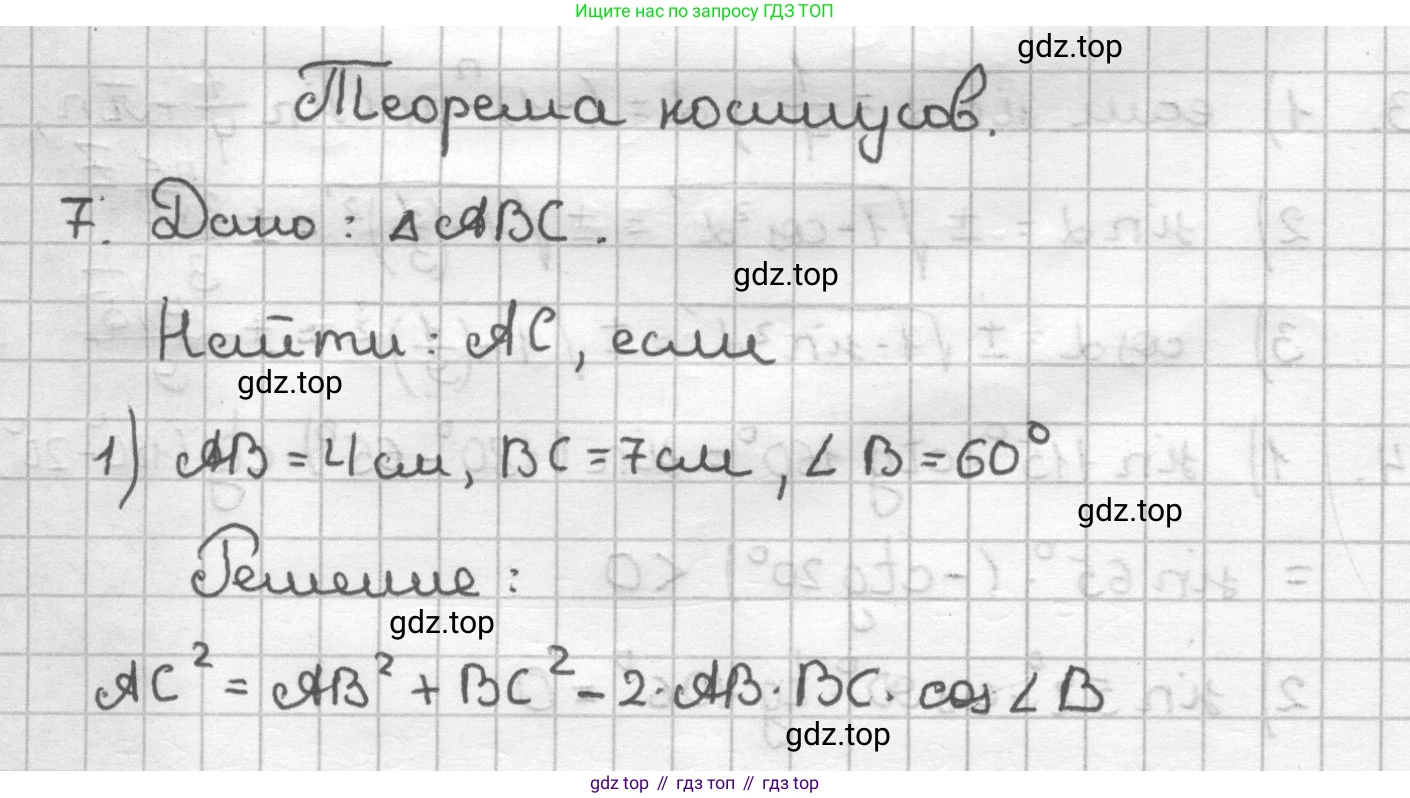 Ищите нас по запросу ГДЗ ТОП
gdz.top
Теорема косинусов.
7. Дано: △ABC.
gdz.top
Найти: AC, если
gdz.top
1) AB = 4 см, BC = 7 см, ∠B = 60°
gdz.top
Решение:
gdz.top
AC² = AB² + BC² - 2·AB·BC·cos∠B
gdz.top
gdz top // гдз топ // гдз top